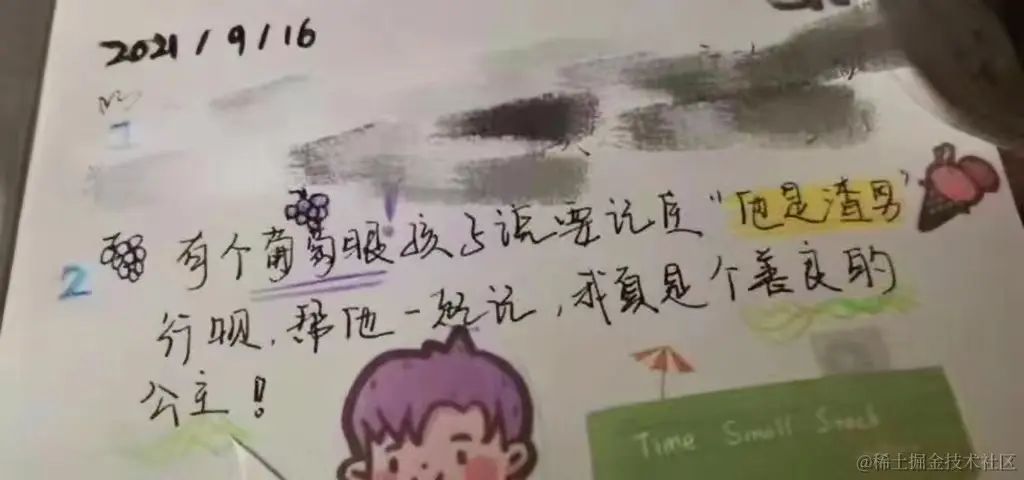 2021/9/16
1
2 有个葡萄眼孩子说要记住“他是渣男”
行呗,帮他一起记,我真是个善良的
公主!
Time Small Snack
@稀土掘金技术社区